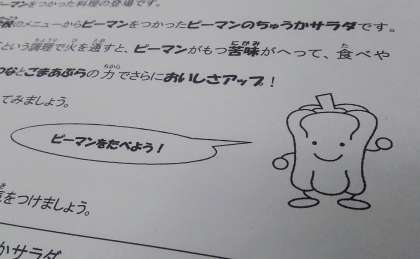 ーマンをつかった料理の登場です。
のメニューからピーマンをつかったピーマンのちゅうかサラダです。
という調理で火を通すと、ピーマンがもつ苦味がへって、食べや
つなとごまあぶらの力でさらにおいしさアップ！
てみましょう。
ピーマンをたべよう！
をつけましょう。
かサラダ